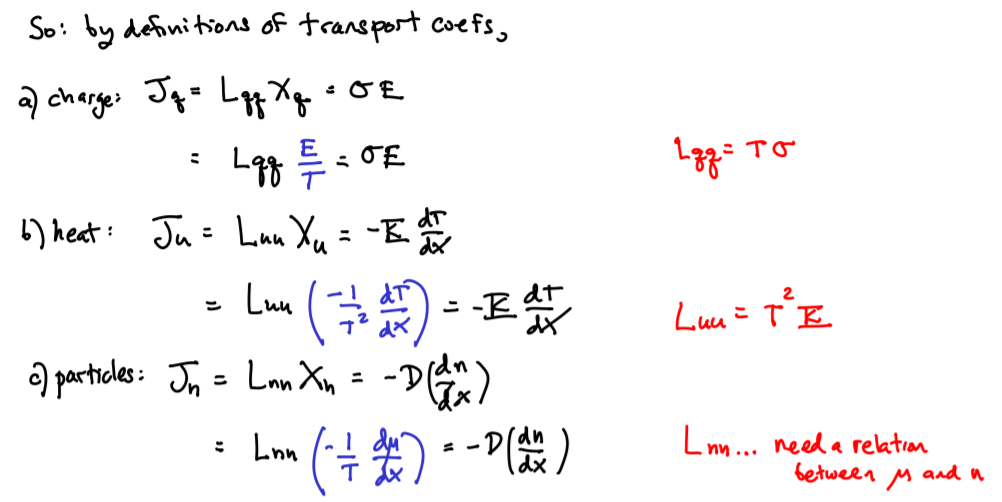 So: by definitions of transport coefs,
a) charge: J_q = L_qq X_q = σE
= L_qq E/T = σE
L_qq = Tσ
b) heat: J_u = L_uu X_u = -K dT/dx
= L_uu (-1/T² dT/dx) = -K dT/dx
L_uu = T² K
c) particles: J_n = L_nn X_n = -D(dn/dx)
= L_nn (-1/T dμ/dx) = -D(dn/dx)
L_nn... need a relation
between μ and n